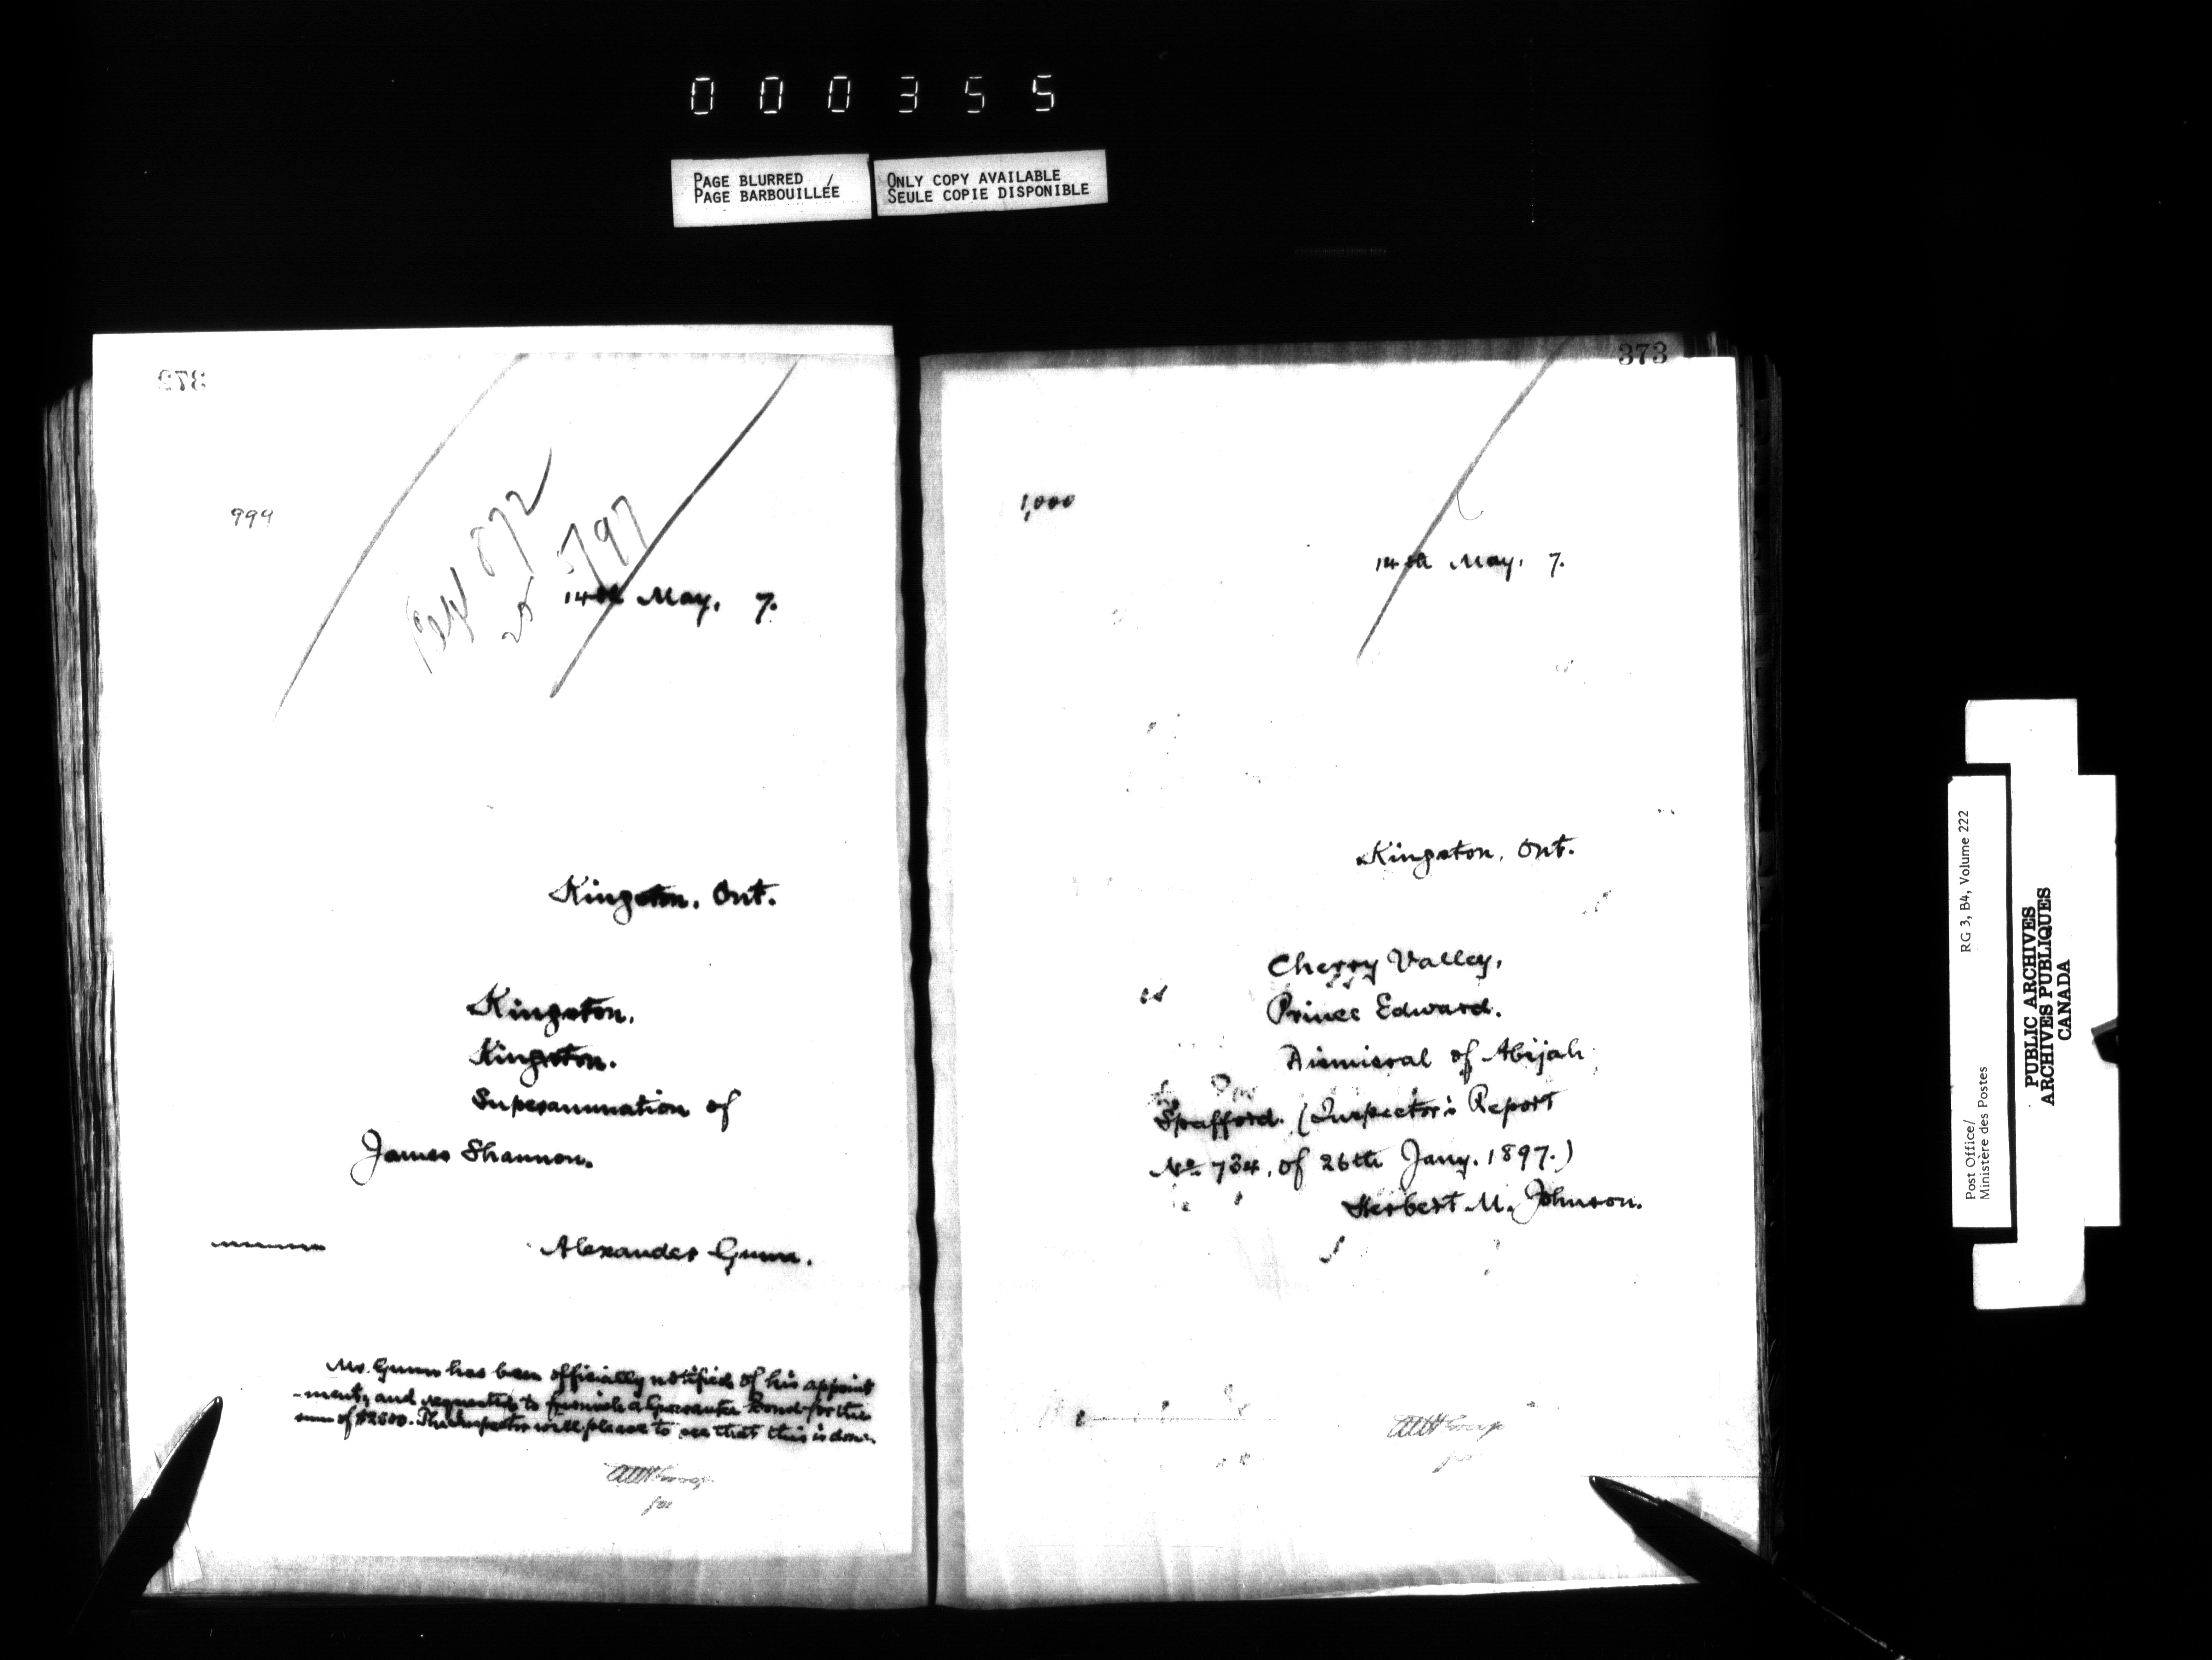 000355
PAGE BLURRED / PAGE BARBOUILLÉE
ONLY COPY AVAILABLE
SEULE COPIE DISPONIBLE
372
999
5/97
14th May, 7.
Kingston, Ont.
Kingston.
Kingston.
Superannuation of
James Shannon.
Alexander Gunn.
Mr. Gunn has been officially notified of his appoint
-ment, and requested to furnish a Guarantee Bond for the
sum of $2800. The Inspector will please to see that this is done.
for
373
1,000
14th May, 7.
Kingston, Ont.
Cherry Valley,
Prince Edward.
Dismissal of Abijah
Spafford. (Inspector's Report
No. 734, of 26th Jany. 1897.)
Herbert M. Johnson.
for
Post Office/ RG 3, B4, Volume 222
Ministère des Postes
PUBLIC ARCHIVES
ARCHIVES PUBLIQUES
CANADA